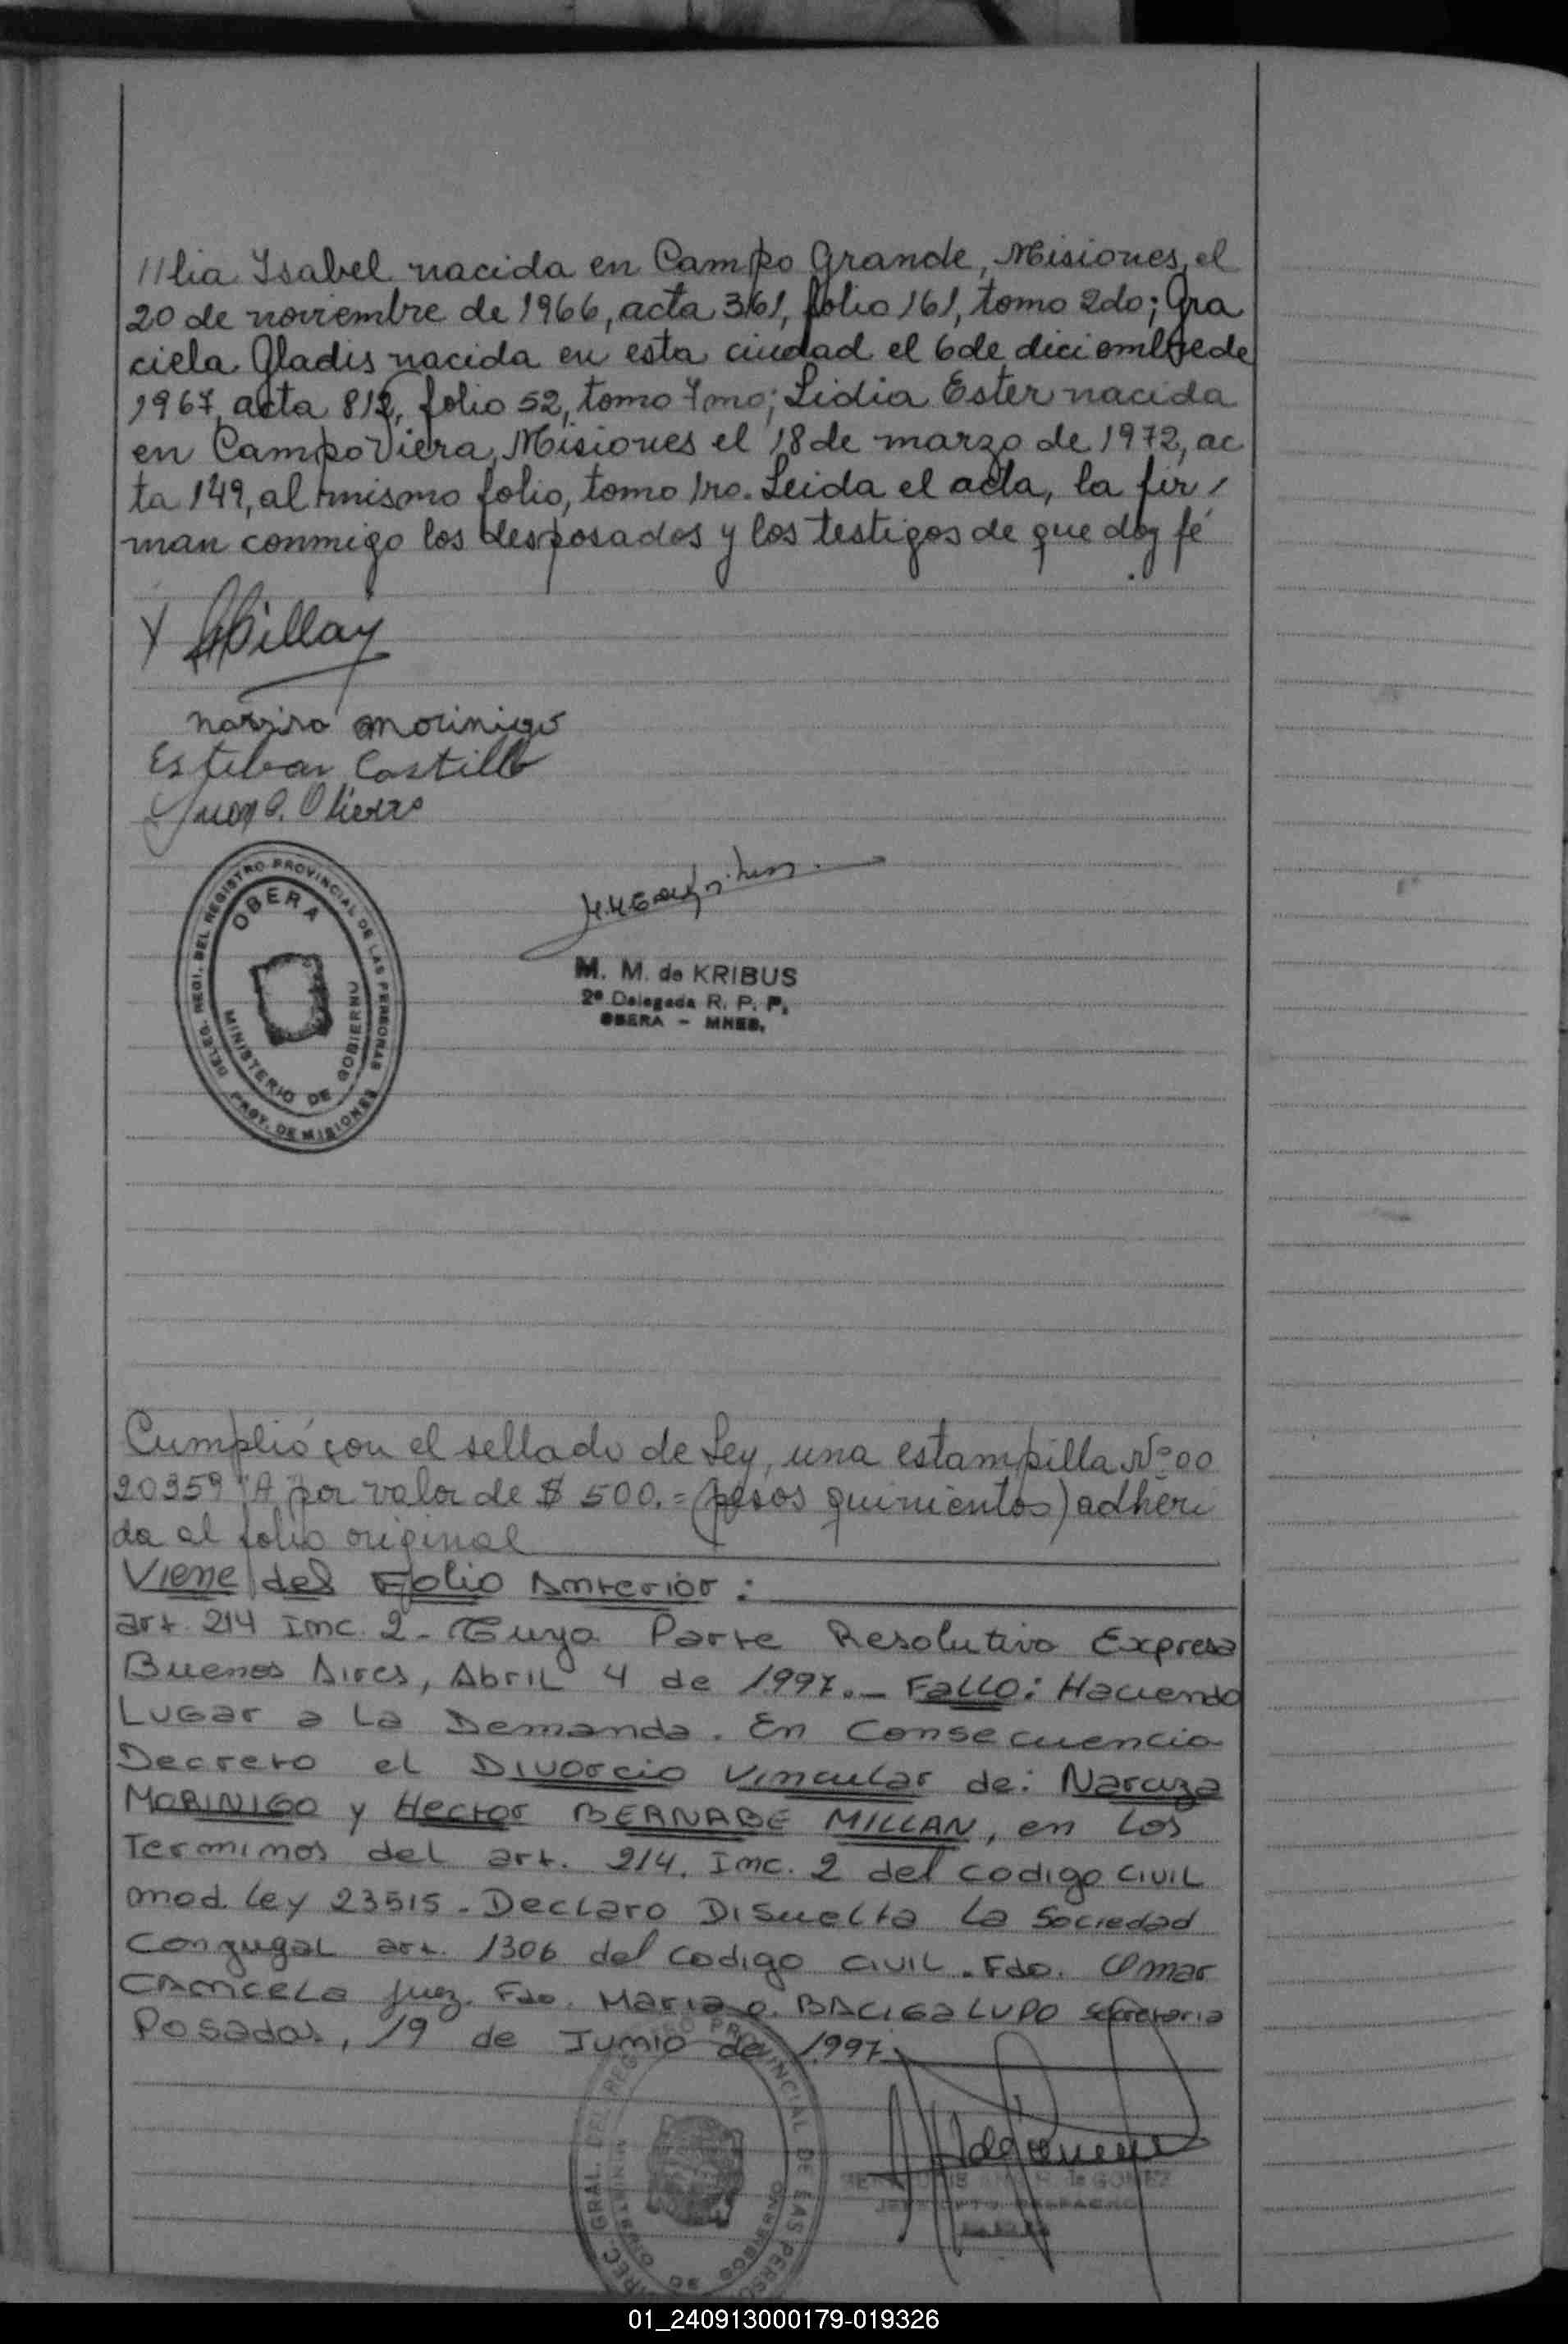 //lia Isabel nacida en Campo Grande, Misiones, el
20 de noviembre de 1966, acta 361, folio 161, tomo 2do; Gra
ciela Gladis nacida en esta ciudad el 6 de diciembre de
1967, acta 812, folio 52, tomo 7mo; Lidia Ester nacida
en Campo Viera, Misiones el 18 de marzo de 1972, ac
ta 149, al mismo folio, tomo 1ro. Leida el acta, la fir/
man conmigo los desposados y los testigos de que doy fé
narziza morinigo
Esteban Castillo
DELEG. REGI. DEL REGISTRO PROVINCIAL DE LAS PERSONAS
OBERA
MINISTERIO DE GOBIERNO
PROV. DE MISIONES
M. M. de KRIBUS
2ª Delegada R. P. P.
OBERA - MNES.
Cumplió con el sellado de Ley, una estampilla Nº 00
20359 "A" por valor de $ 500.= (pesos quinientos) adheri
da al folio original
Viene del Folio Anterior:
art. 214 Inc. 2- Cuya Parte Resolutiva Expresa
Buenos Aires, Abril 4 de 1997.- Fallo: Haciendo
Lugar a La Demanda. En Consecuencia
Decreto el Divorcio Vincular de: Narciza
MORINIGO y Hector BERNABE MILLAN, en Los
Terminos del art. 214. Inc. 2 del codigo civil
mod. Ley 23515. Declaro Disuelta La Sociedad
Conyugal art. 1306 del codigo civil. Fdo. Omar
Juez. Fdo. Maria O. BACIGALUPO secretaria
Posadas, 19 de Junio de 1997.
DIREC. GRAL. DEL REGISTRO PROVINCIAL DE LAS PERSO
MINISTERIO DE GOBIERNO
de GOMEZ
JEFE DPTO. DESPACHO
01_240913000179-019326